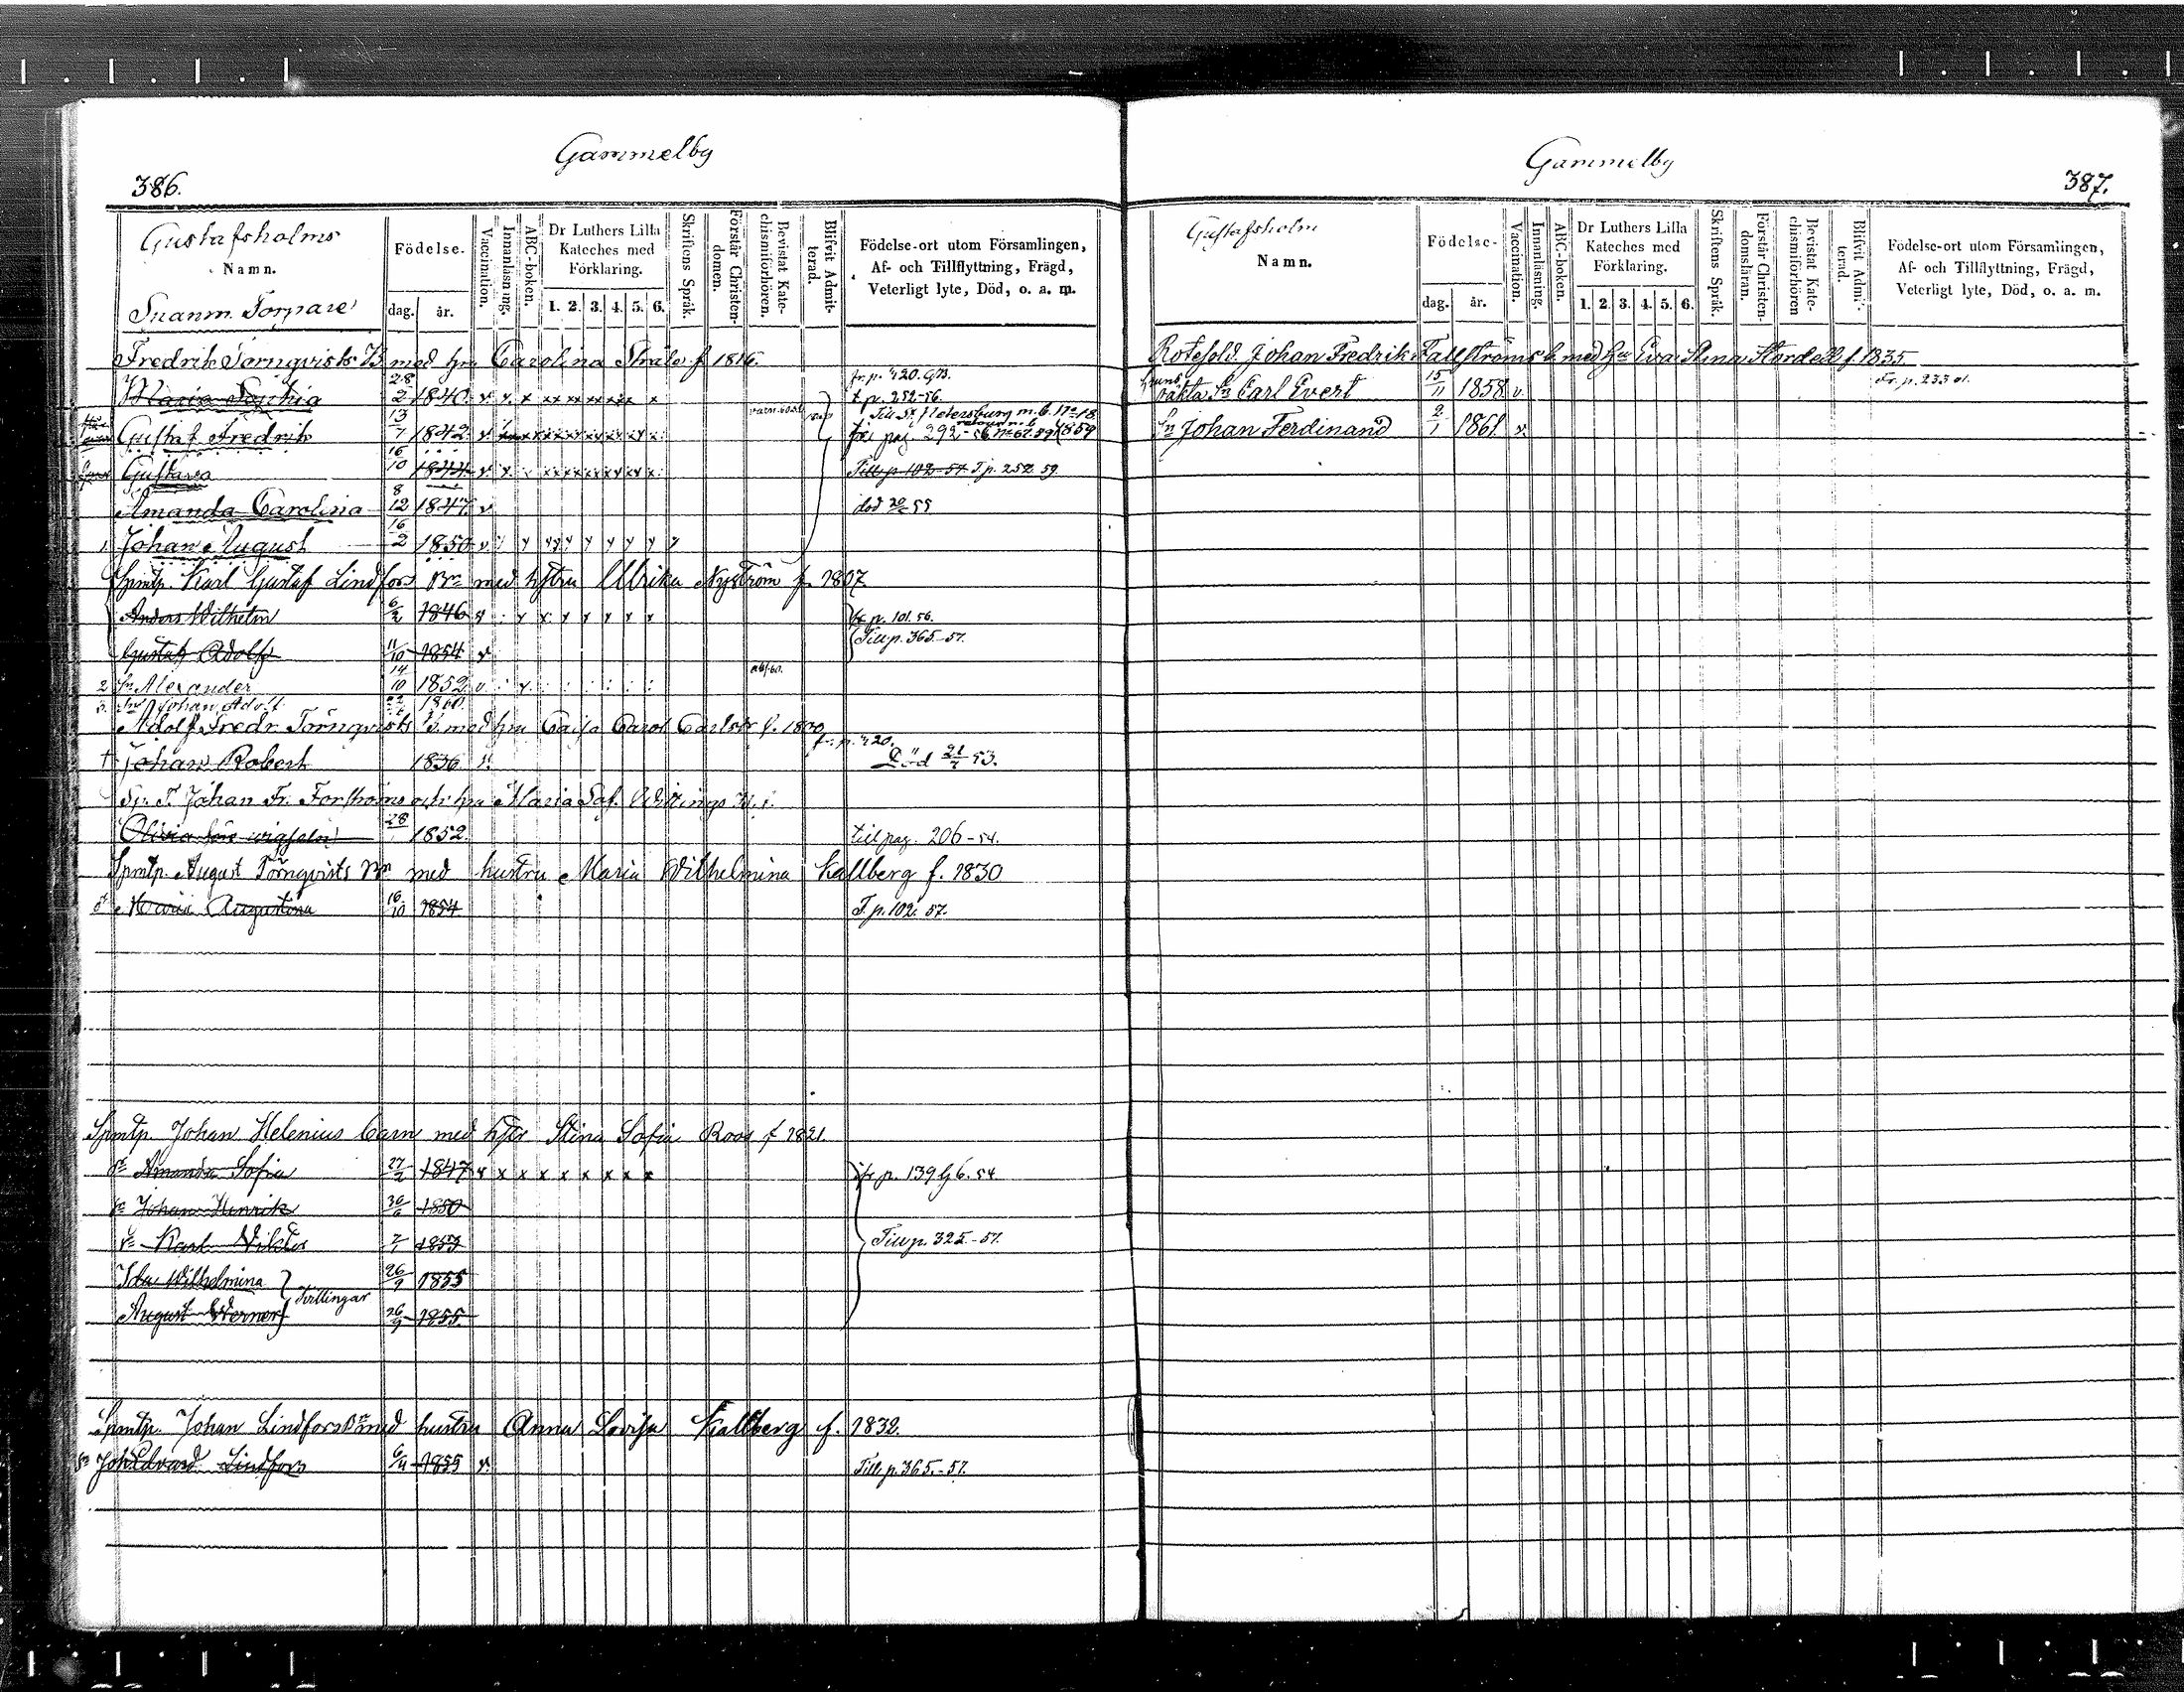 Gammelby
386.
Gustafsholms
Namn.
Spanm. Torpare
Födelse.
dag. år.
Vaccination.
Innanläsning.
ABC-boken.
Dr Luthers Lilla
Kateches med
Förklaring.
1. 2. 3. 4. 5. 6.
Skriftens Språk.
Förstår Christen-
domen.
Bevistat Kate-
chismiförhören.
Blifvit Admit-
terad.
Födelse-ort utom Församlingen,
Af- och Tillflyttning, Frägd,
Veterligt lyte, Död, o. a. m.
Fredrik Törnqvists B med hru Carolina Stråle f 1816
fr. p. 420. GB.
Maria Sophia 28/2 1840. v x x xx xx xx xx x t p. 252-56.
Till St. Petersburg m. b.
Gustaf Fredrik 13/7 1842 v pag. 292 1859
Gustava 16/10 1844 v x Till p 102-57 T p. 252 59
Amanda Carolina 8/12 1847 v död 55
1. Johan August 16/2 1850 v
Spmtp. Karl Gustaf Lindfors Brn med hstru Ulrika Nyström f. 1807
Anders Wilhelm 6/2 1846 v fr p. 101. 56.
Gustaf Adolf 11/10 1854 v Till p. 365-57.
2 Sn Alexander 14/10 1852 v
3. Sn Johan Adolf 1860.
Adolf Fredr. Törnqvists B. med hru Cajsa Carol Carlstr f. 18
fr. p. 420.
† Johan Robert 1836 v. Död 53.
Sp. T. Johan Fr. Forsströms och hru Maria Sof.
Olivia före wigseln 28 1852. till pag. 206-54.
Spmtp. August Törnqvists Brn med hustru Maria Wilhelmina Kallberg f. 1830
dr Maria Augustina 16/10 1854 T. p. 102. 57.
Spmtp. Johan Helenius barn med hstr Stina Sofia Roos f 1821.
dr Amanda Sofia 27/2 1847 v x x x x x x x x fr p. 139 Gb. 54.
sn Johan Henrik 30/6 1850
sn Karl Viktor 7/1 1853 Till p. 325-57.
Ida Wilhelmina 26/9 1855
Tvillingar
August Werner 26/9 1855
Spmtp. Johan Lindfors Brn med hustru Anna Lovisa Kallberg f. 1832.
Sn Joh Edvard Lindfors 6/4 1855 v. Till p. 365.-57.
Gammelby
387.
Gustafsholm
Namn.
Födelse-
dag. år.
Vaccination.
Innanläsning.
ABC-boken.
Dr Luthers Lilla
Kateches med
Förklaring.
1. 2. 3. 4. 5. 6.
Skriftens Språk.
Förstår Christen-
domsläran.
Bevistat Kate-
chismiförhören
Blifvit Admit-
terad.
Födelse-ort utom Församlingen,
Af- och Tillflyttning, Frägd,
Veterligt lyte, Död, o. a. m.
Rotesold. Johan Fredrik Fallströms b. med hu Eva Stina Stordell f 1835
äkta Sn Carl Evert 15/11 1858 v. Fr. p. 233 61.
Sn Johan Ferdinand 2/1 1861 v.